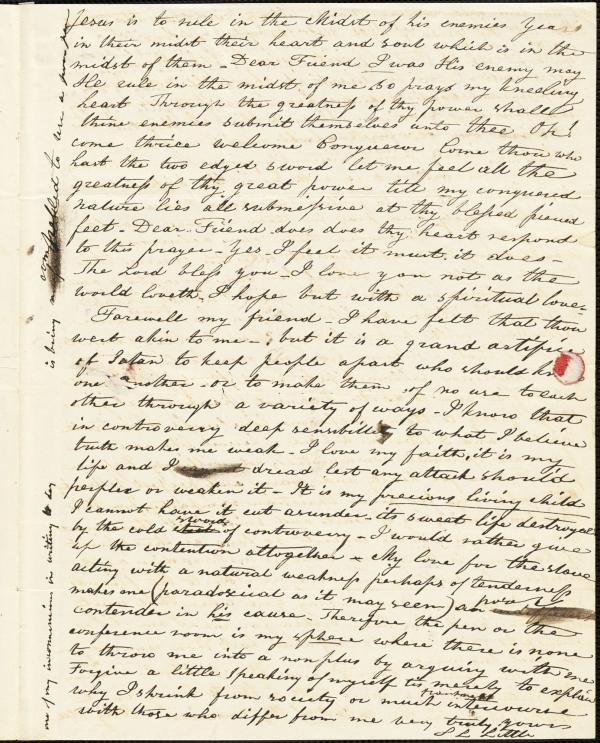 Jesus is to rule in the midst of his enemies Years
in their midst their heart and soul which is in the
midst of them - Dear Friend I was His enemy may
He rule in the midst of me so prays my kneeling
heart Through the greatness of thy power shall
thine enemies submit themselves unto thee Oh!
come thrice welcome Conqueror Come thou who
hast the two edged sword let me feel all the
greatness of thy great power till my conquered
nature lies all submissive at thy blessed pierced
feet - Dear Friend does does thy heart respond
to this prayer - Yes I feel it must, it does -
The Lord bless you - I love you not as the
world loveth, I hope but with a spiritual love -
Farewell my friend - I have felt that thou
wert akin to me - but it is a grand artifice
of Satan to keep people apart who should know
one another - or to make them of no use to each
other through a variety of ways - I know that
in controversy deep sensibility to what I believe
truth makes me weak - I love my faith, it is my
life and I dread lest any attack should
perplex or weaken it - It is my precious living child
I cannot have it cut asunder - its sweet life destroyed
by the cold sword of controversy - I would rather give
up the contention altogether - My love for the slave
acting with a natural weakness perhaps of tenderness
makes me (paradoxical as it may seem) a
contender in his cause. Therefore the pen or the
conference room is my sphere where there is none
to throw me into a nonplus by arguing with me
Forgive a little speaking of myself tis merely to explain
why I shrink from society or much intercourse
with those who differ from me very truly yours
S L Little
one of my inconveniences in writing to day
is being compelled to use a poor pen